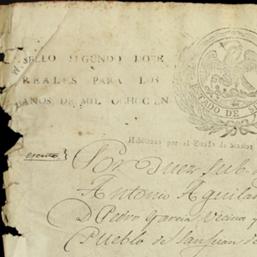 SELLO SEGUNDO DOZE
REALES PARA LOS
AÑOS DE MIL OCHOCIEN
ESTADO DE
Habilitado por el Estado de Mexico
Por
Antonio Aguilar
D. Pedro Garcia Vecino y
Pueblo de San Juan de